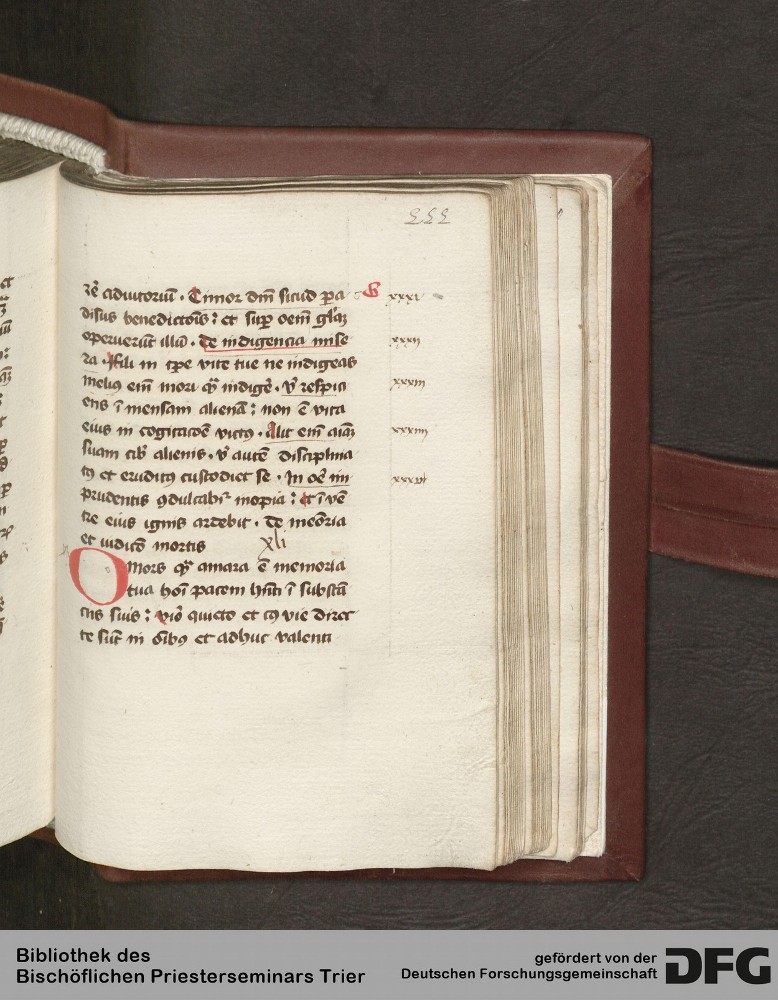 222
re adiutoriu . Timor dni sicud pa G xxxi
disus benedictois : et sup oem glaz
operuerut illu . De indigencia mise xxxii
ra . Fili in tpe vite tue ne indigeas
melius eni mori q indige . v respici xxxiii
ens i mensam aliena : non e vita
eius in cogitacoe victus . Alit eni aiaz xxxiiii
suam cib alienis . v aute disciplina
tus et eruditus custodiet se . In oe im
prudentis 9dulcabir inopia : et i ve
tre eius ignis ardebit . De meoria
et iudico mortis xli
O mors q amara e memoria
tua hoi pacem hnti i substa
ciis suis : viro quieto et cus vie direc
te sut in oibus et adhuc valenti
Bibliothek des
Bischöflichen Priesterseminars Trier
gefördert von der
Deutschen Forschungsgemeinschaft
DFG